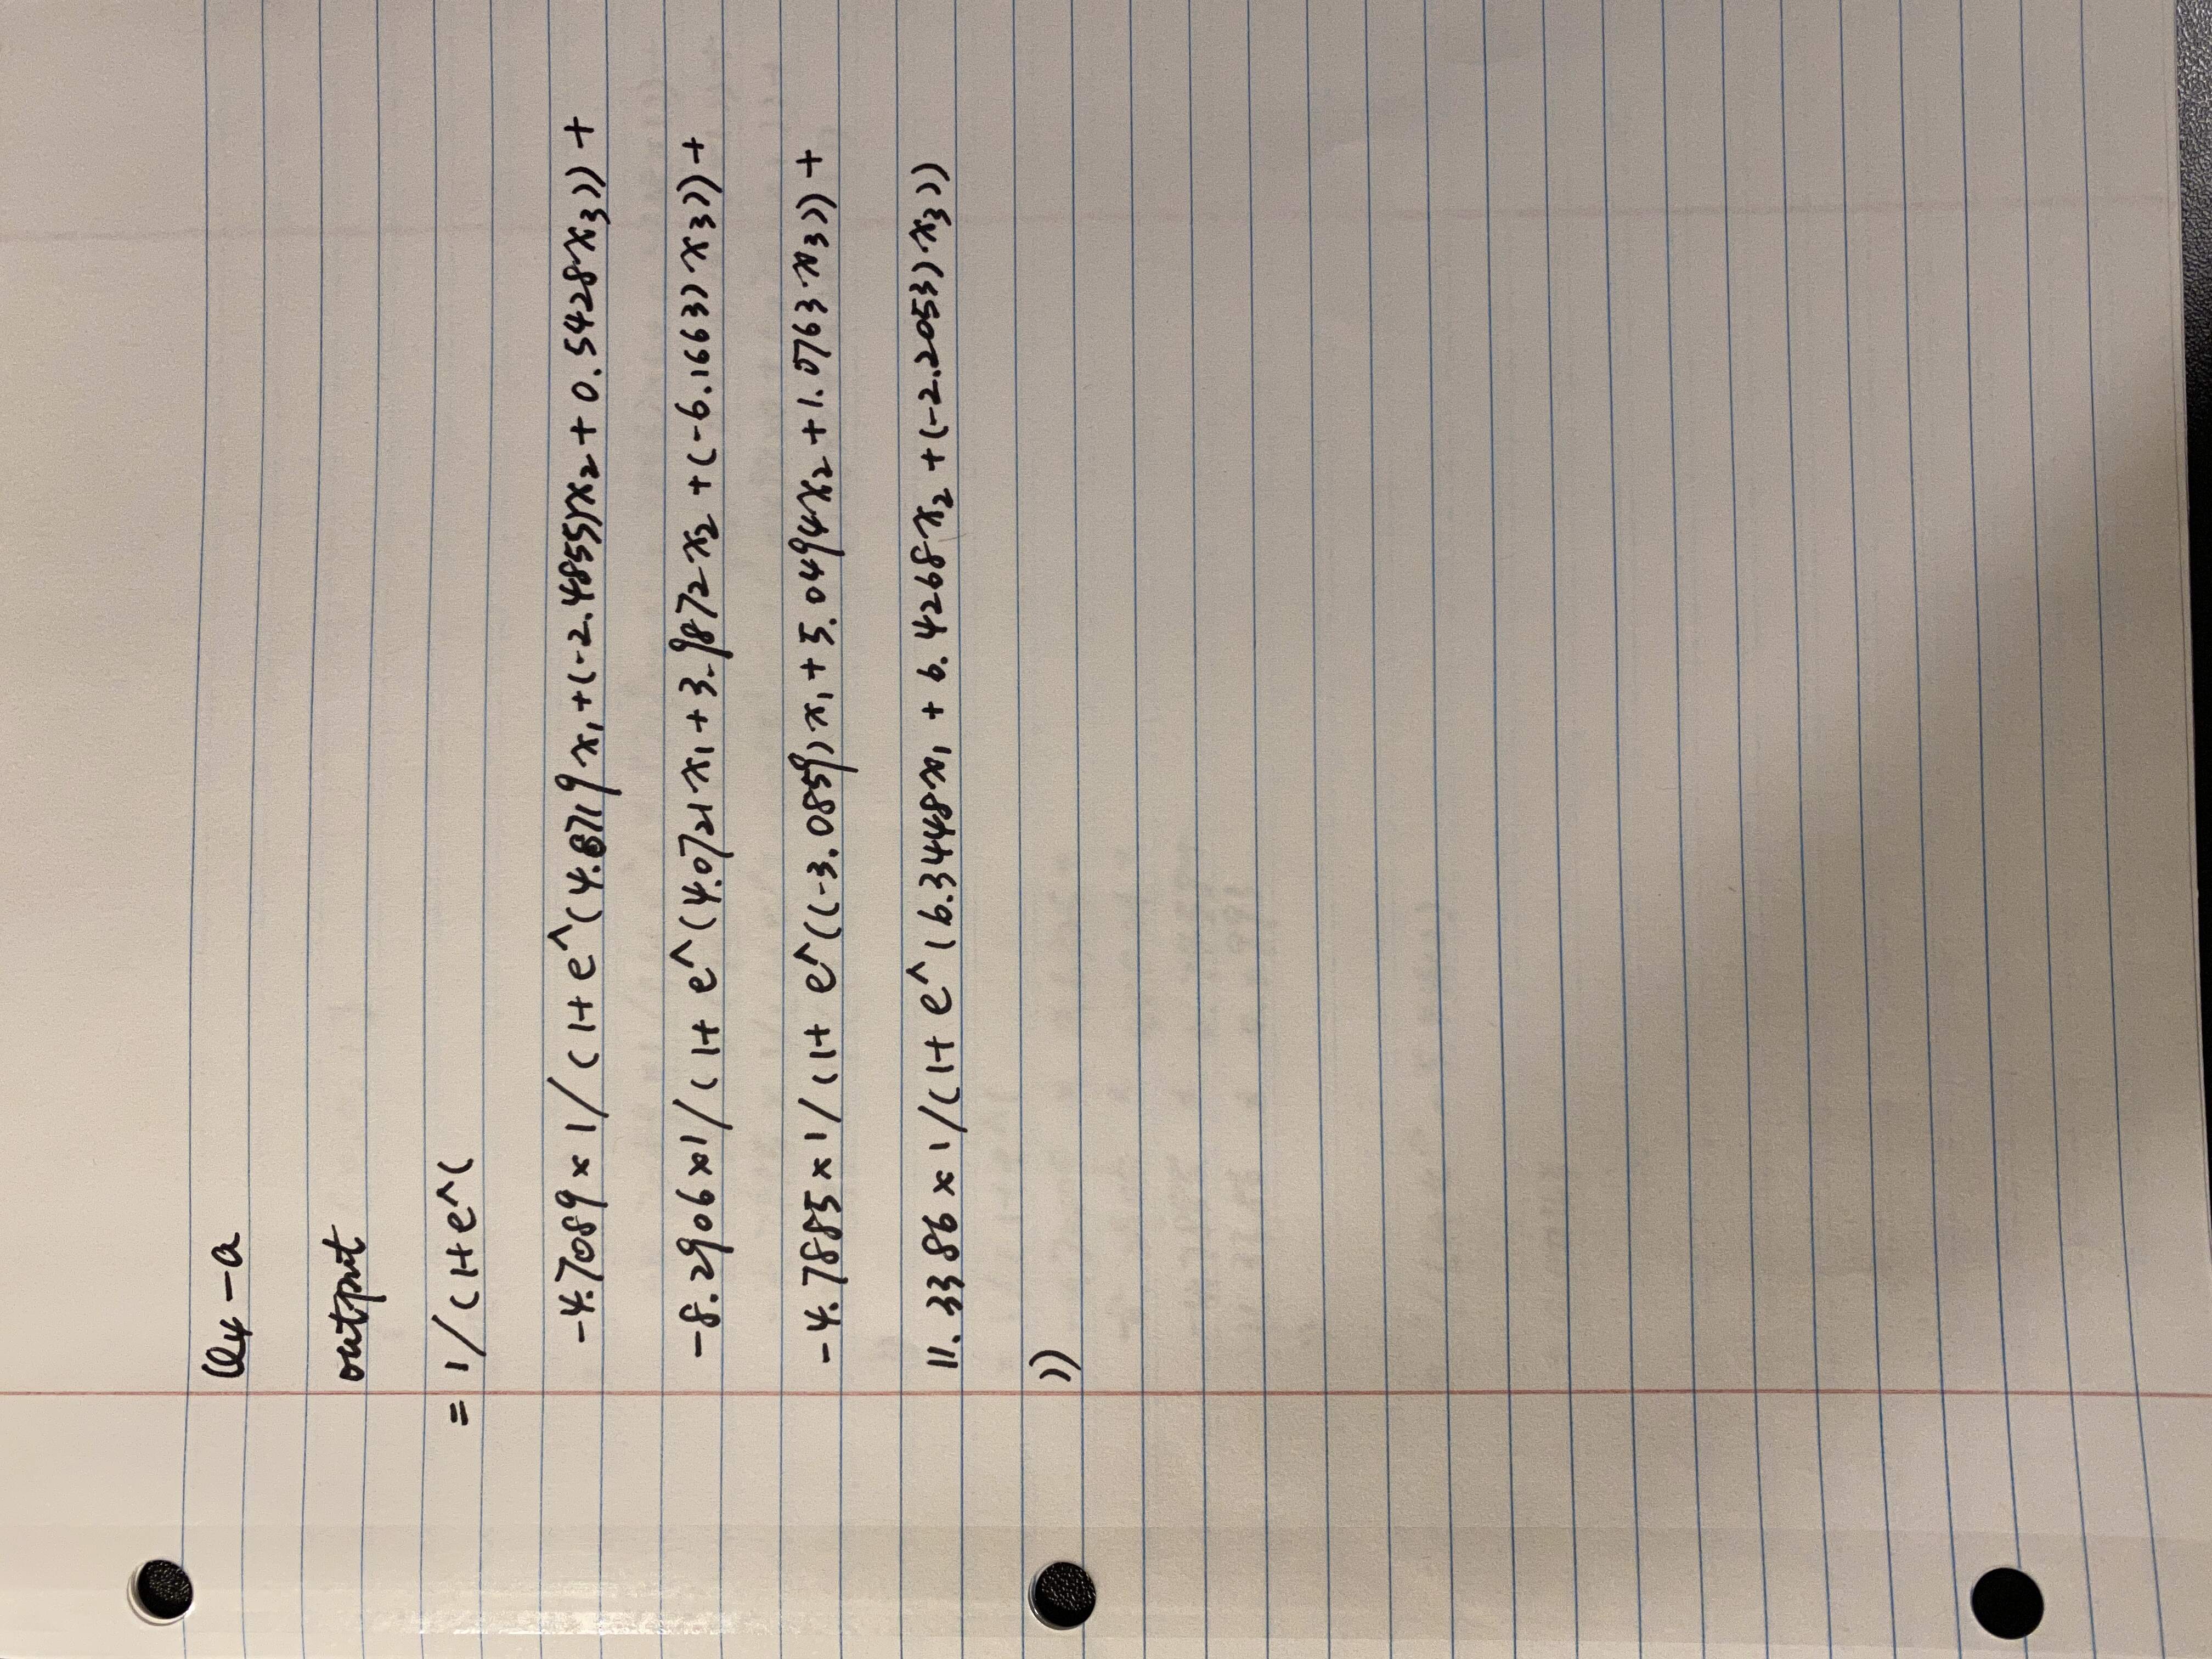 Q4-a
output
= 1/(1+e^(
-4.7089 × 1/(1+e^(4.8719x₁+(-2.4855)x₂+0.5428x₃))+
-8.2906×1/(1+e^(4.0721x₁+3.9872x₂+(-6.1663)x₃))+
-4.7885×1/(1+e^((-3.0859)x₁+5.0494x₂+1.0763x₃))+
11.3386×1/(1+e^(6.3448x₁+6.4268x₂+(-2.2053)x₃))
))